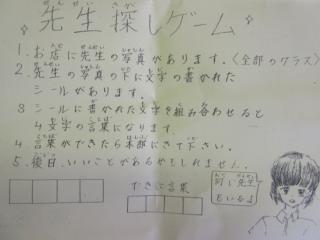 先生探しゲーム
1. お店に先生の写真があります。〈全部のクラス〉
2. 先生の写真の下に文字の書かれた
シールがあります。
3 シールに書かれた文字を組み合わせると
4文字の言葉になります。
4 言葉ができたら本部にきて下さい。
5. 後日、いいことがあるかもしれません。
できた言葉
同じ先生
もいるよ